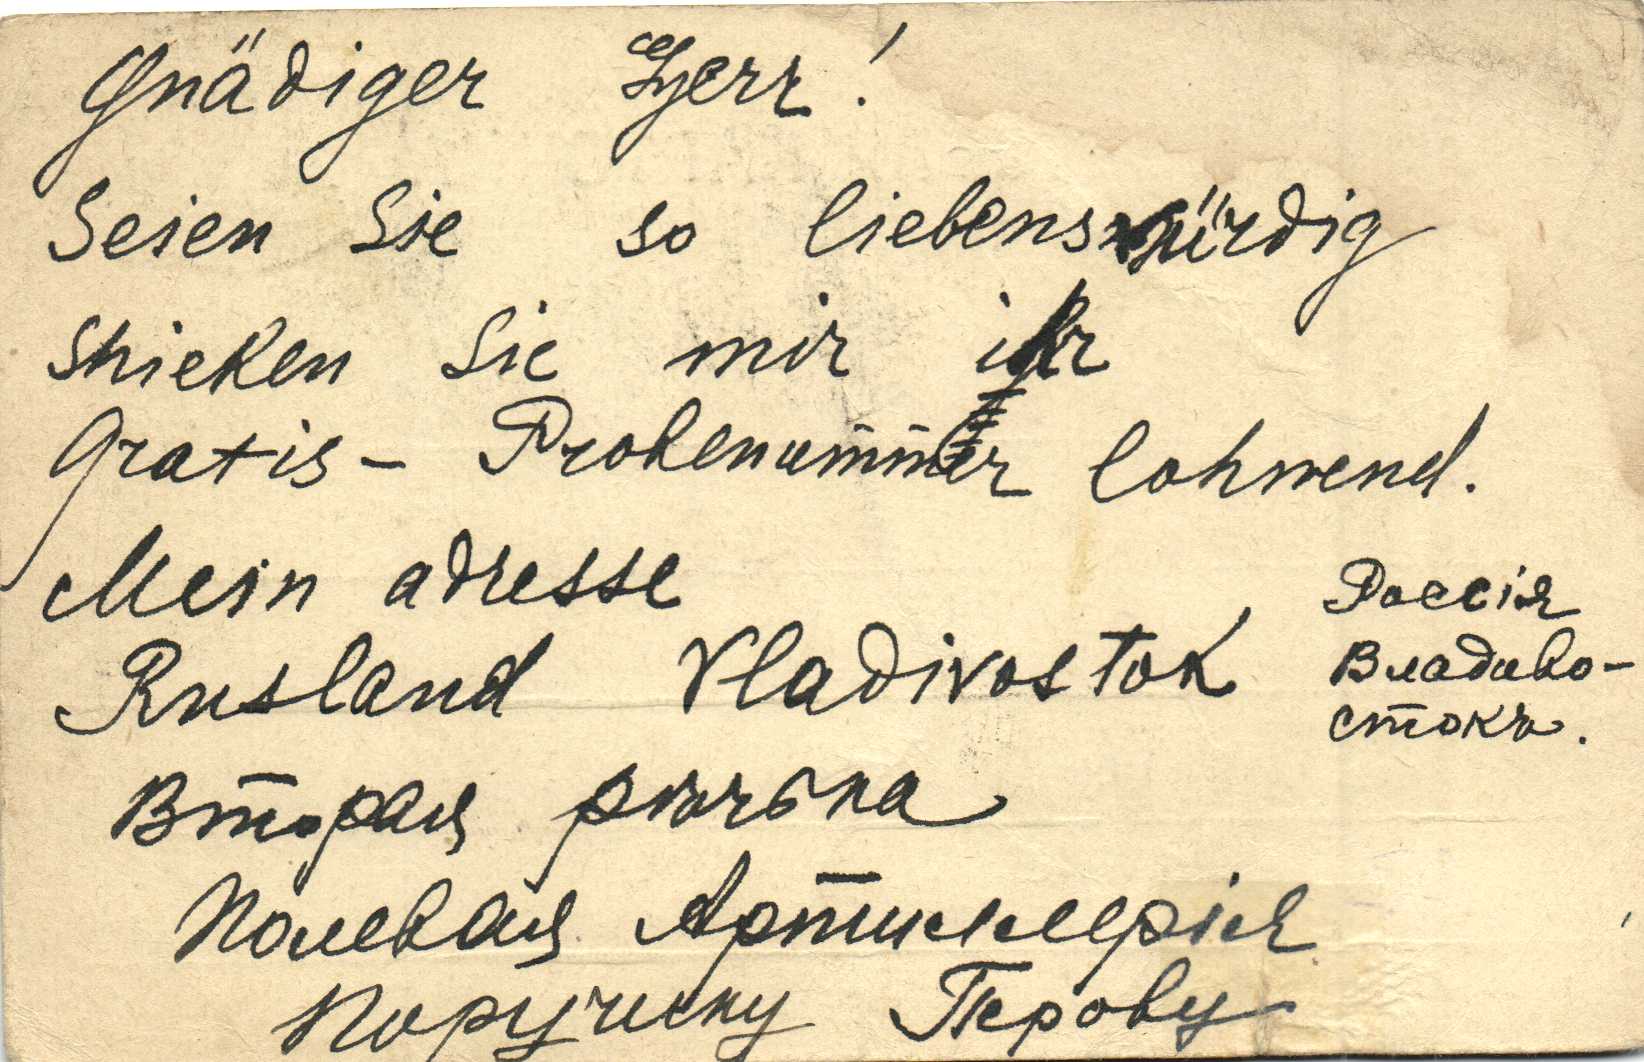 Gnädiger Herr!
Seien Sie so liebenswürdig
shieken Sie mir ihr
Gratis - Probenummer lohnend.
Mein adresse
Rusland Vladivostok
Россія
Владиво-
стокъ.
Вторая рѣчька
Полевая Артиллерія
Поручику Перову